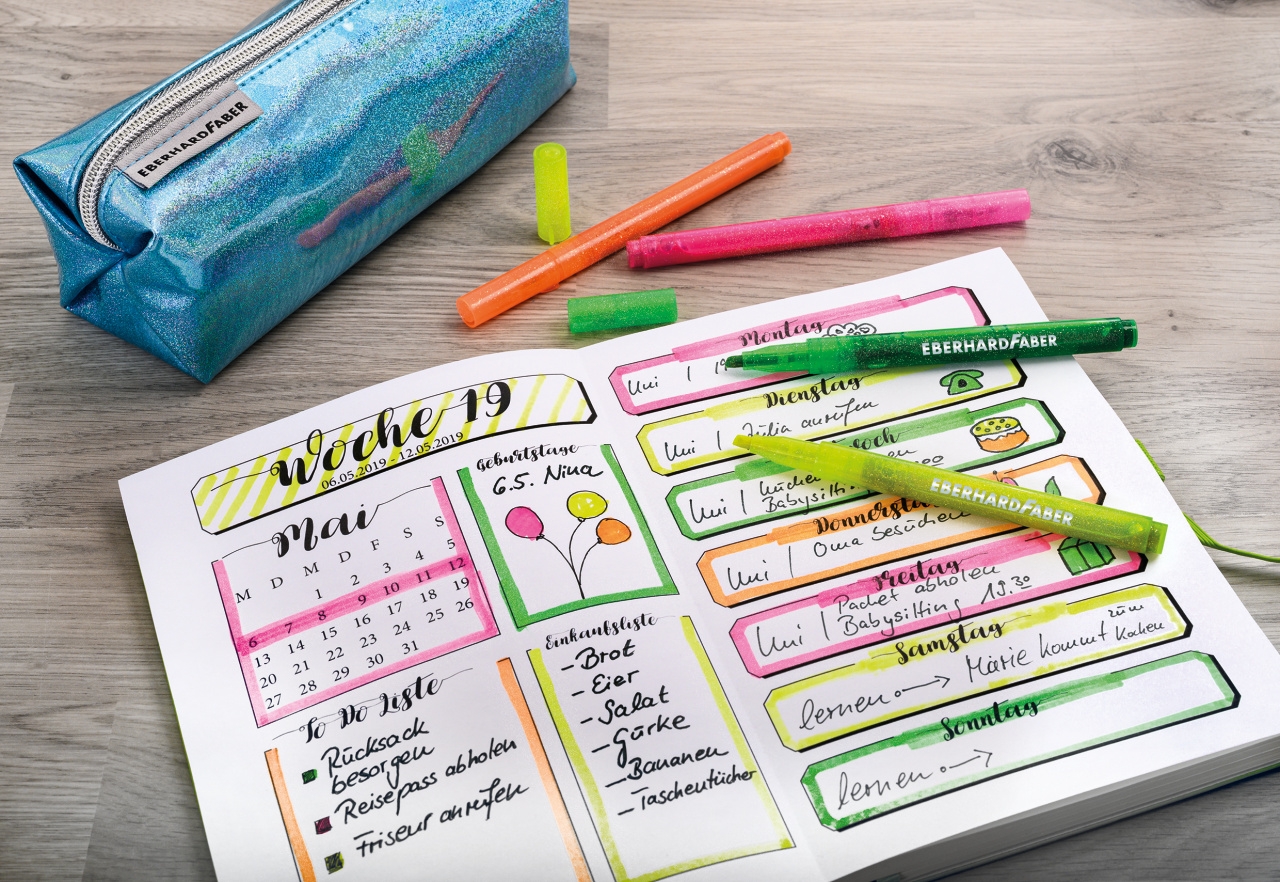 EBERHARDFABER
EBERHARDFABER
EBERHARDFABER
Woche 19
06.05.2019 - 12.05.2019
Mai
M D M D F S S
1 2 3 4 5
6 7 8 9 10 11 12
13 14 15 16 17 18 19
20 21 22 23 24 25 26
27 28 29 30 31
Geburtstage
6.5. Nina
To Do Liste
Rücksack
besorgen
Reisepass abholen
Friseur anrufen
Einkaufsliste
- Brot
- Eier
- Salat
- Gurke
- Bananen
- Taschentücher
Montag
Uni |
Dienstag
Uni | Julia anrufen
Uni |
Babysitt
Donnersta
Uni | Oma besuchen
Freitag
Packet abholen
Uni | Babysitting 19.30
Samstag
lernen → Marie kommt zum Kochen
Sonntag
lernen →